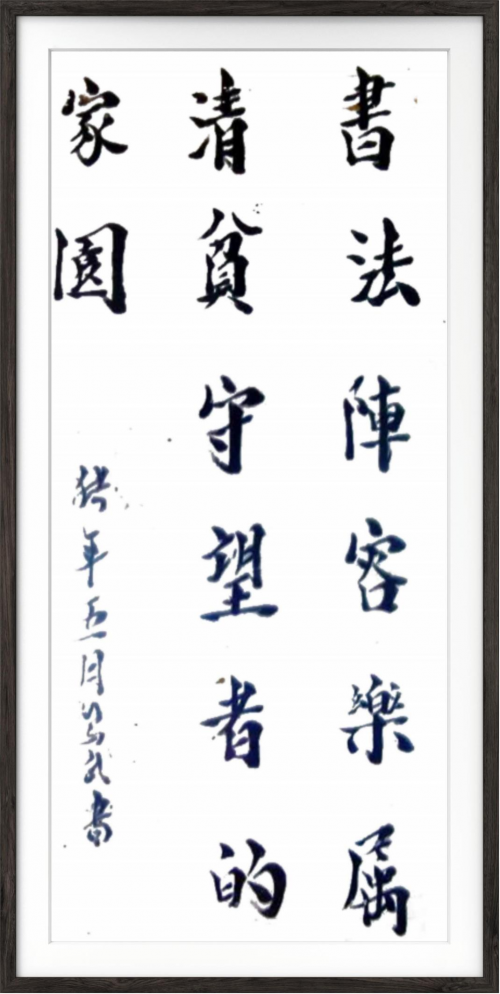 書法陣容樂屬
清貧守望者的
家園
猪年五月 书